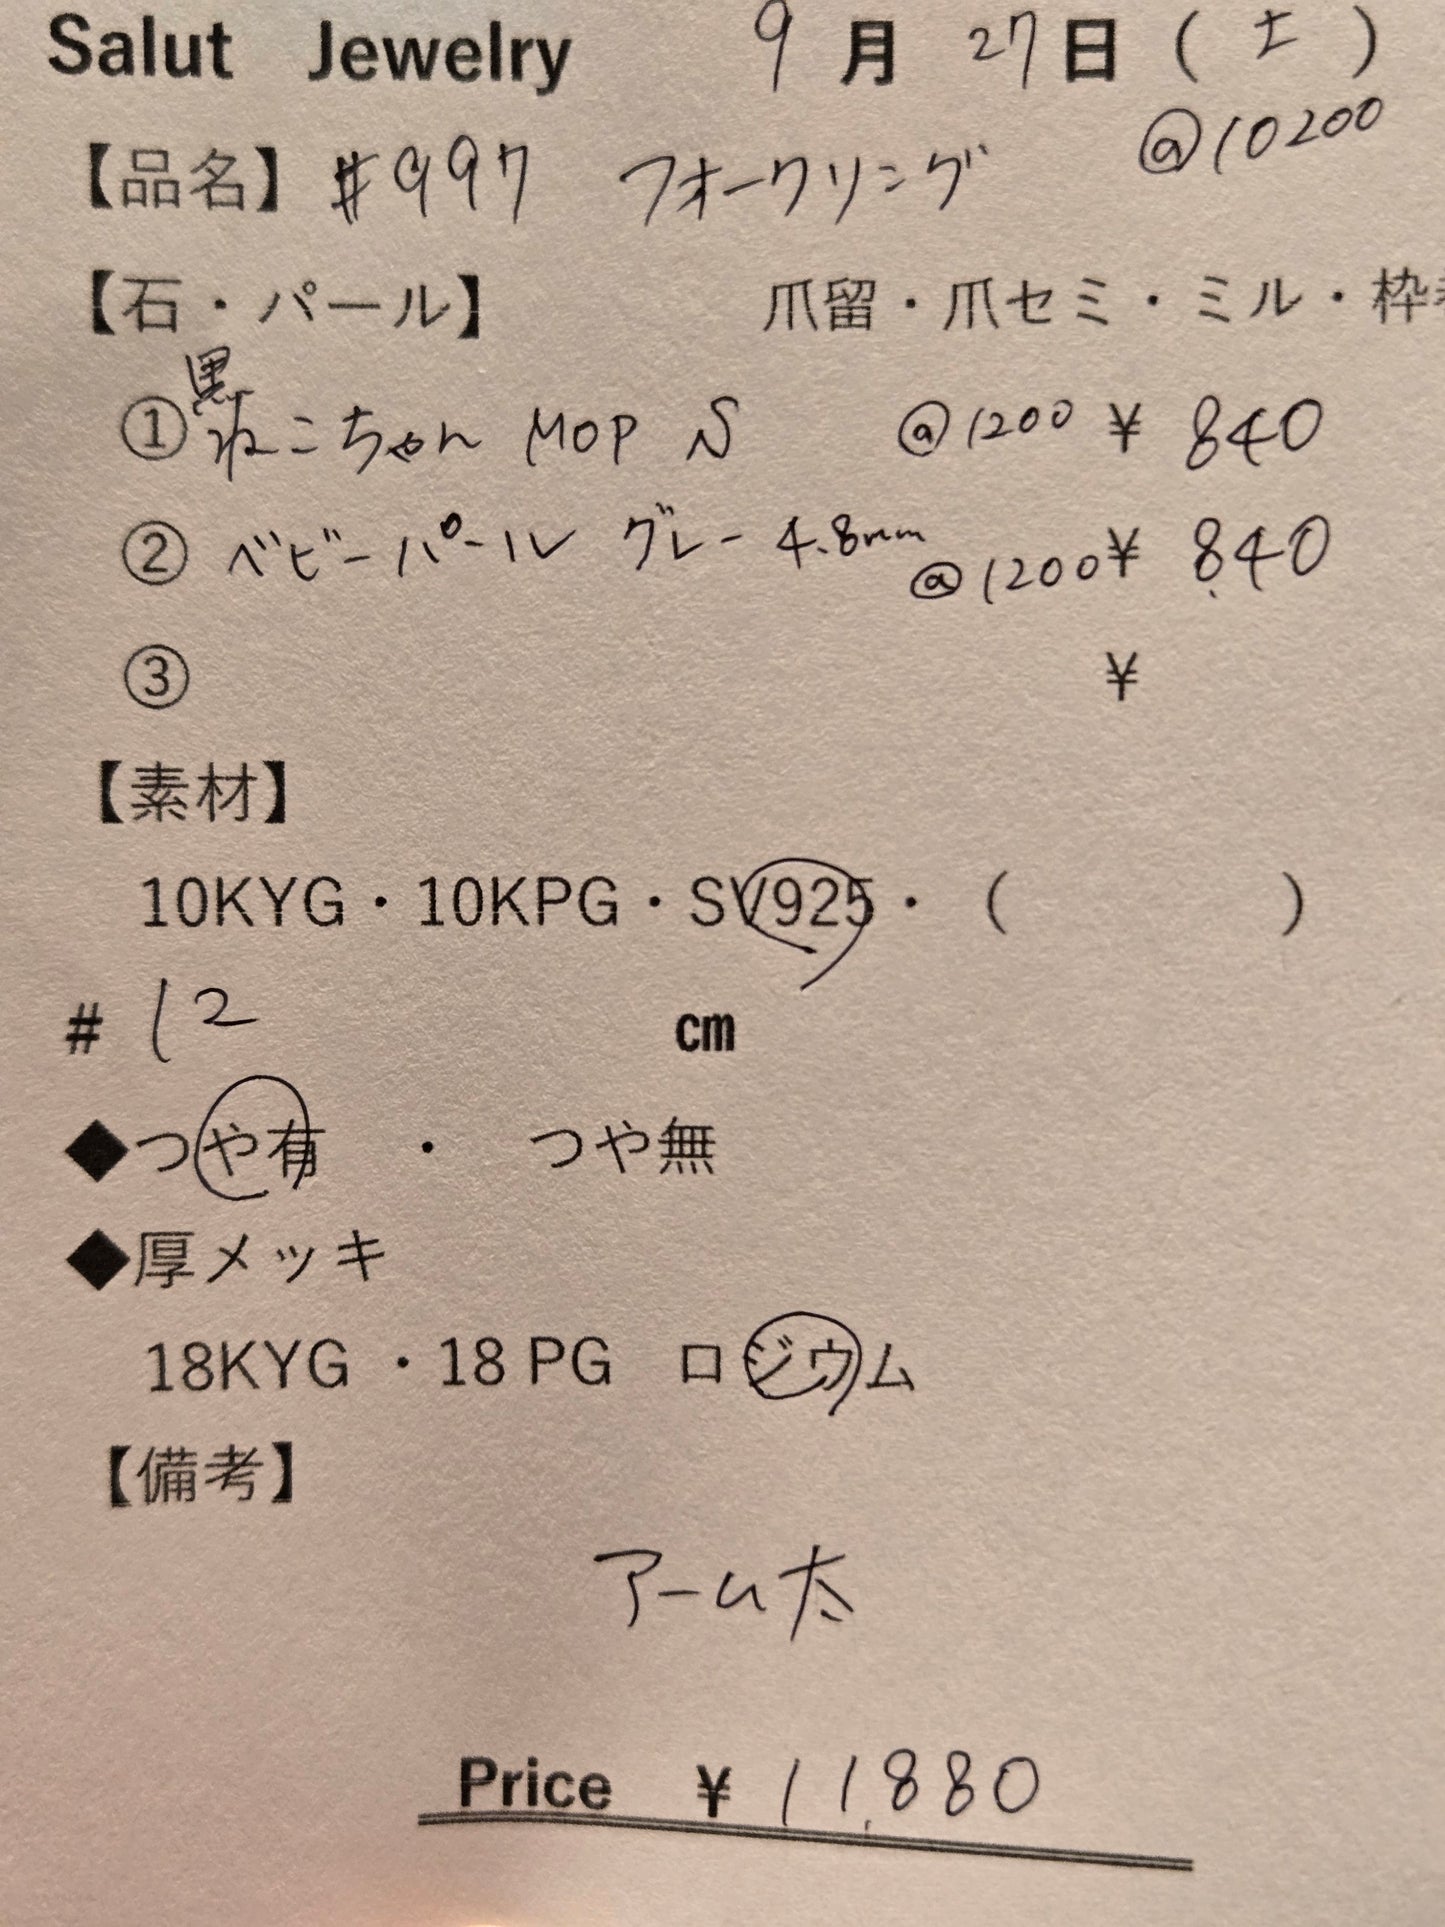 Salut Jewelry 9月27日(土)
@10200
【品名】#997 フォークリング
【石・パール】 爪留・爪セミ・ミル・枠
黒
①ねこちゃん MOP S @1200 ¥840
②ベビーパール グレー 4.8mm @1200 ¥840
③ ¥
【素材】
10KYG・10KPG・SV925・( )
# 12 cm
◆つや有 ・ つや無
◆厚メッキ
18KYG ・18 PG ロジウム
【備考】
アーム太
Price ¥11,880